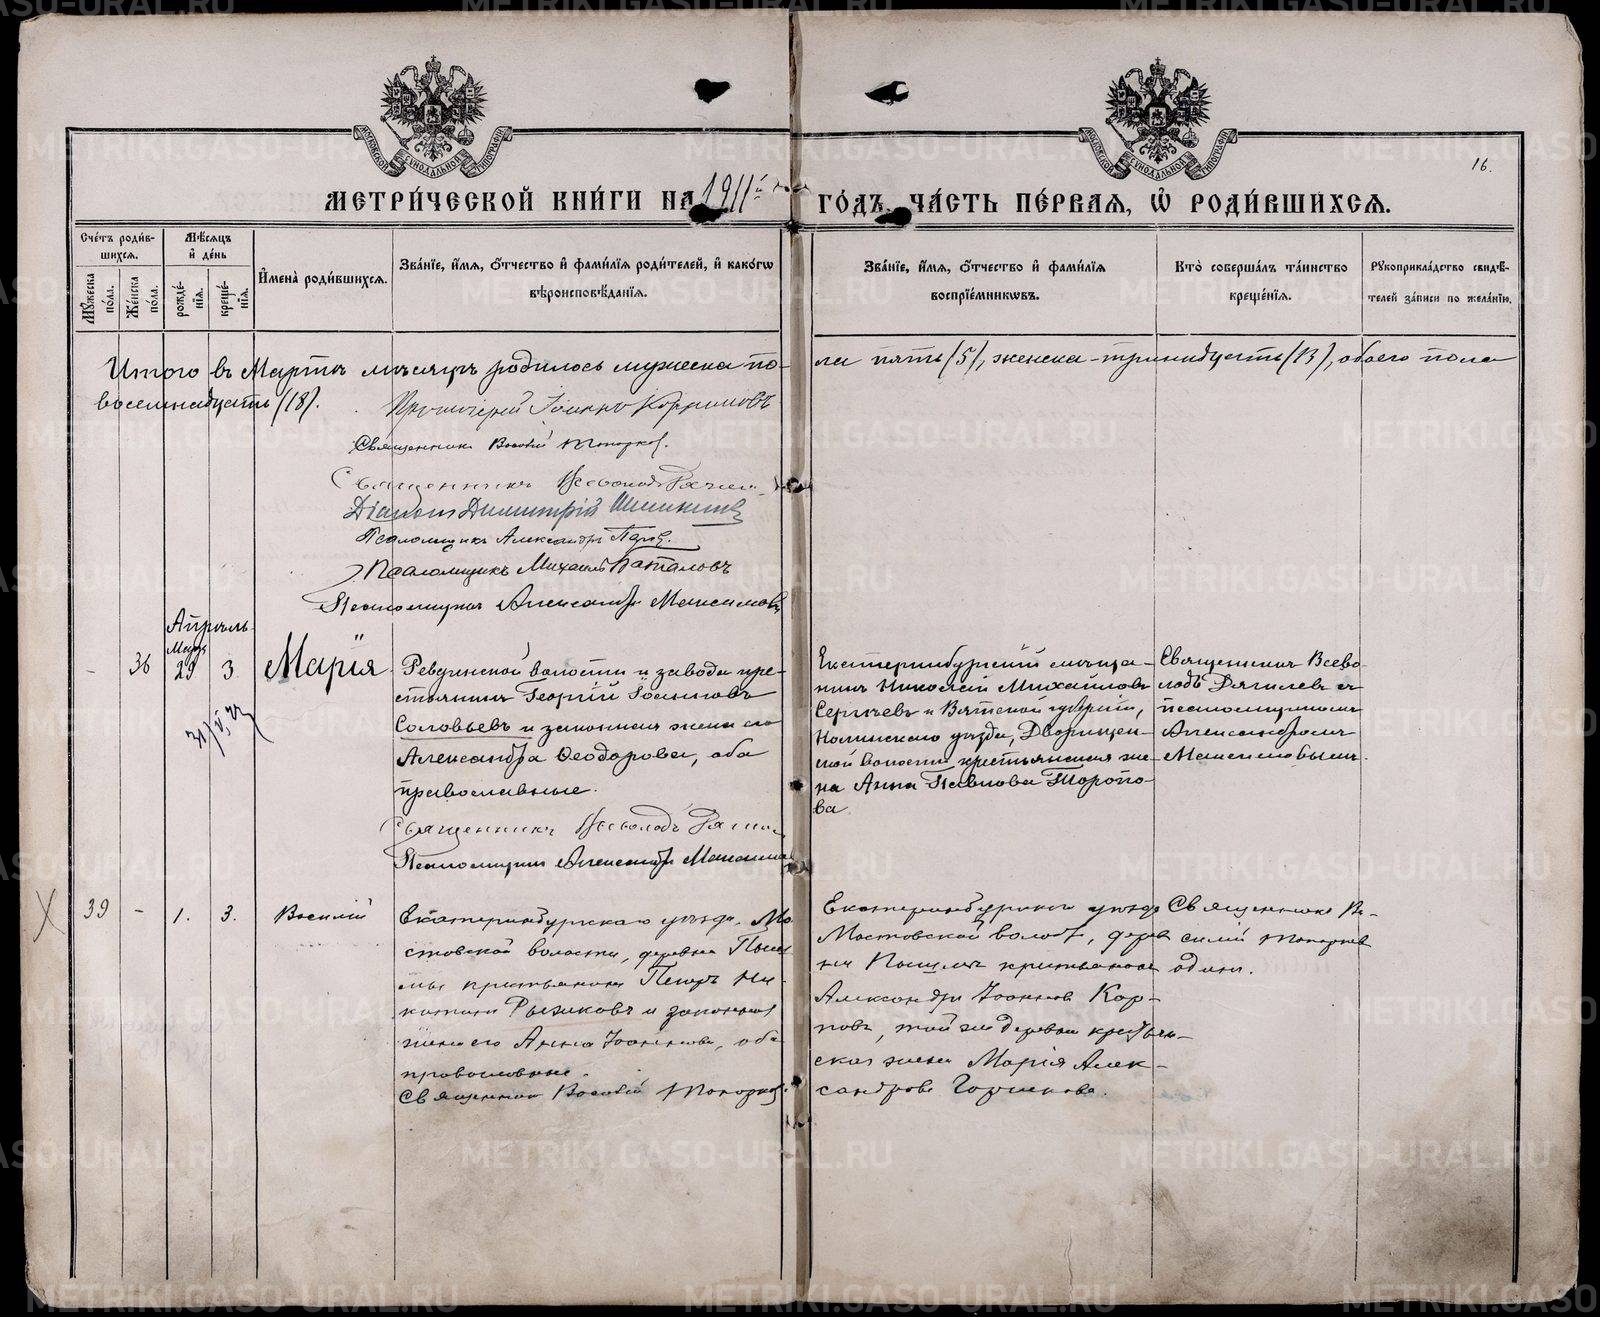 МОСКОВСКОЙ СѴНОДАЛЬНОЙ ТИПОГРАФІИ
МОСКОВСКОЙ СѴНОДАЛЬНОЙ ТИПОГРАФІИ
16.
МЕТРИ́ЧЕСКОЙ КНИ́ГИ НА 1911й ГО́ДЪ, ЧА́СТЬ ПЕ́РВАЯ, Ѡ҆ РОДИ́ВШИХСѦ.
Сче́тъ роди́вшихсѧ.
Мѣ́сѧцъ и҆ де́нь
Мꙋ́жеска по́ла.
Же́нска по́ла.
рожде́нїѧ.
креще́нїѧ.
И҆мена̀ роди́вшихсѧ.
Зва́нїе, и҆́мѧ, ѻ҆́тчество и҆ фами́лїѧ роди́телей, и҆ како́гѡ
вѣроисповѣ́данїѧ.
Зва́нїе, и҆́мѧ, ѻ҆́тчество и҆ фами́лїѧ
воспрїе́мникѡвъ.
Кто̀ соверша́лъ та́инство
креще́нїѧ.
Рꙋкоприкла́дство свидѣ́телей за́писи по жела́нїю.
Итого въ Мартѣ мѣсяцѣ родилось мужеска по-
ла пять (5), женска - тринадцать (13), обоего пола
восемнадцать (18).
Протоіерей Іоаннъ
Священникъ Василій Топорков.
Священникъ Всеволодъ
Діаконъ Димитрій
Псаломщикъ Александръ
Псаломщикъ Михаилъ
Псаломщикъ Александръ Максимовъ
Апрѣль
Марта
36
29
3
Марія
Ревдинской волости и завода кре-
стьянинъ Георгій Іоанновъ
Соловьевъ и законная жена его
Александра Ѳеодорова, оба
православные.
Священникъ Всеволодъ
Псаломщикъ Александръ Максимов
Екатеринбургскій мѣща-
нинъ Николай Михайловъ
Сергѣевъ и Вятской губерніи,
Нолинскаго уѣзда,
ской волости крестьянская же-
на Анна Павлова Торопо-
ва
Священникъ Всево-
лодъ Дягилевъ съ
псаломщикомъ
Александромъ
Максимовымъ.
39
-
1.
3.
Василій
Екатеринбургскаго уѣзда. Мо
стовской волости, деревни
крестьянинъ Петръ Ни-
китинъ Рыжиковъ и законная
жена его Анна Іоаннова, оба
православные.
Священникъ Василій Топорков.
Екатеринбургскаго уѣзда
Мостовской волости, дерев
ни крестьянинъ
Александръ Іоанновъ Кор-
повъ, той же деревни крестьян-
ская жена Марія Алек-
сандрова
Священникъ Ва-
силій Топорковъ
одинъ.
METRIKI.GASO-URAL.RU